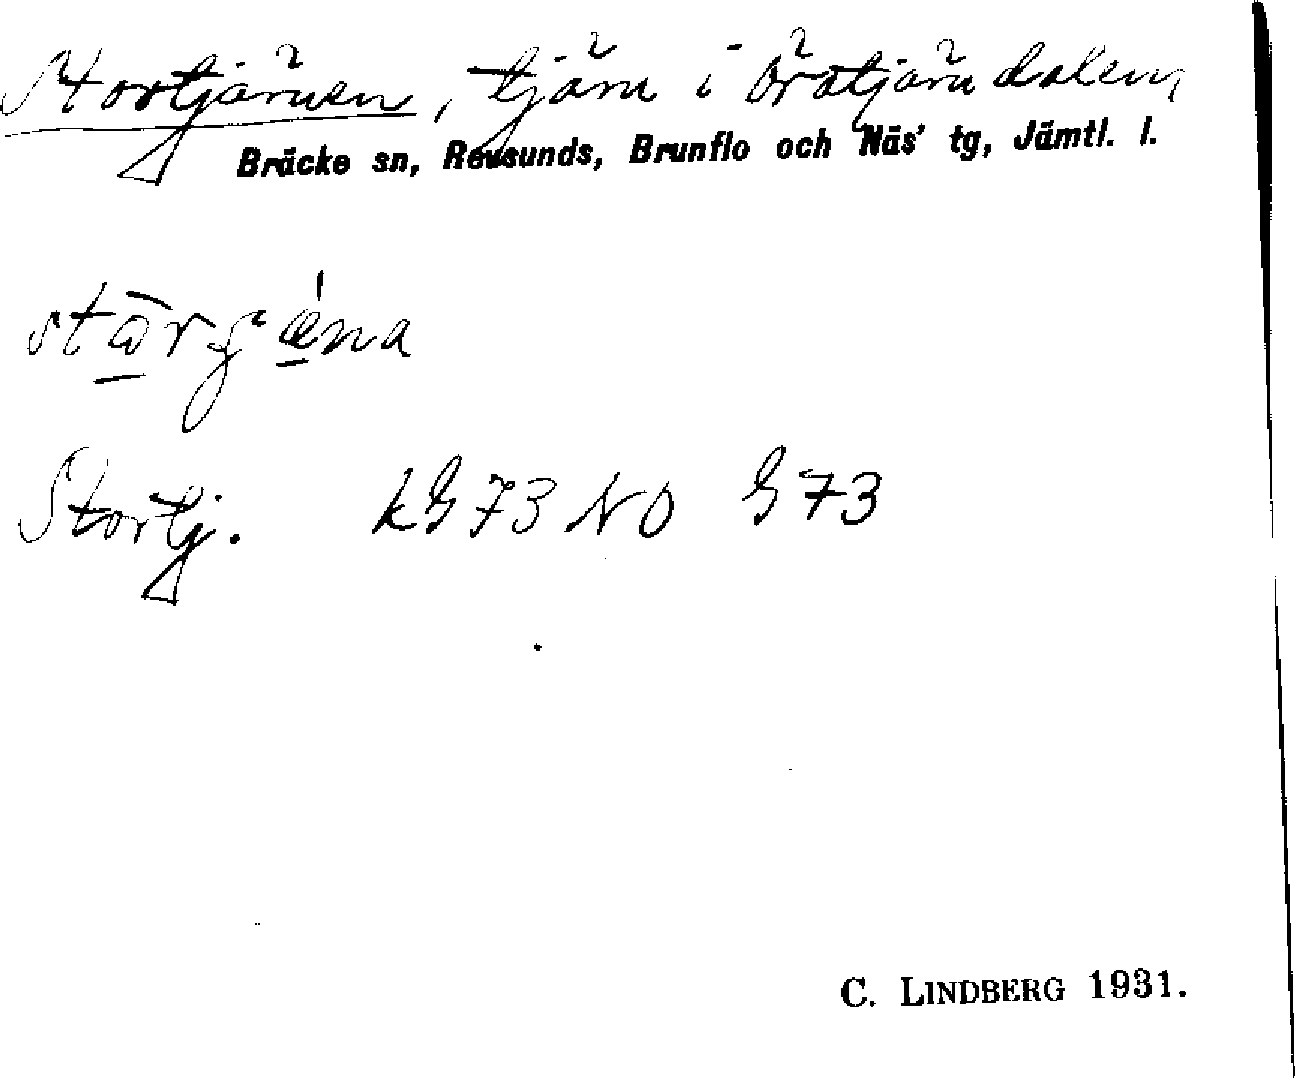 Stortjärnen, tjärn i Öråtjärndalen,
Bräcke sn, Revsunds, Brunflo och Näs' tg, Jämtl. l.
Stortj. kG 73 NO G 73
C. LINDBERG 1931.